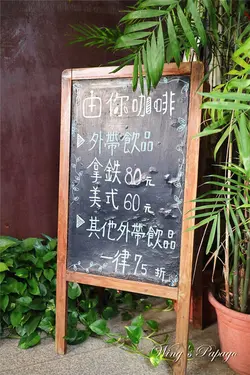 由你咖啡
▷外帶飲品
拿鉄80元
美式60元
▷其他外帶飲品
一律75折
Ming's Papago